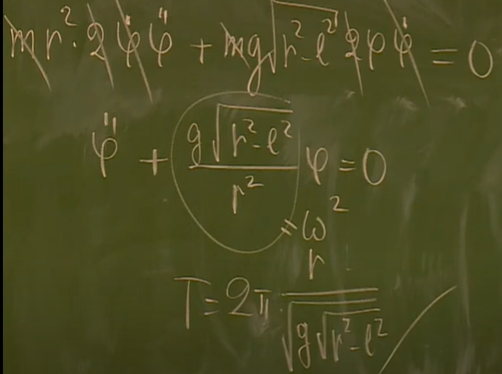 mr²·2φ̇φ̈ + mg√(r²-l²) 2φφ̇ = 0
φ̈ + (g√(r²-l²))/r² φ = 0
= ω²
T = 2π r/√(g√(r²-l²))